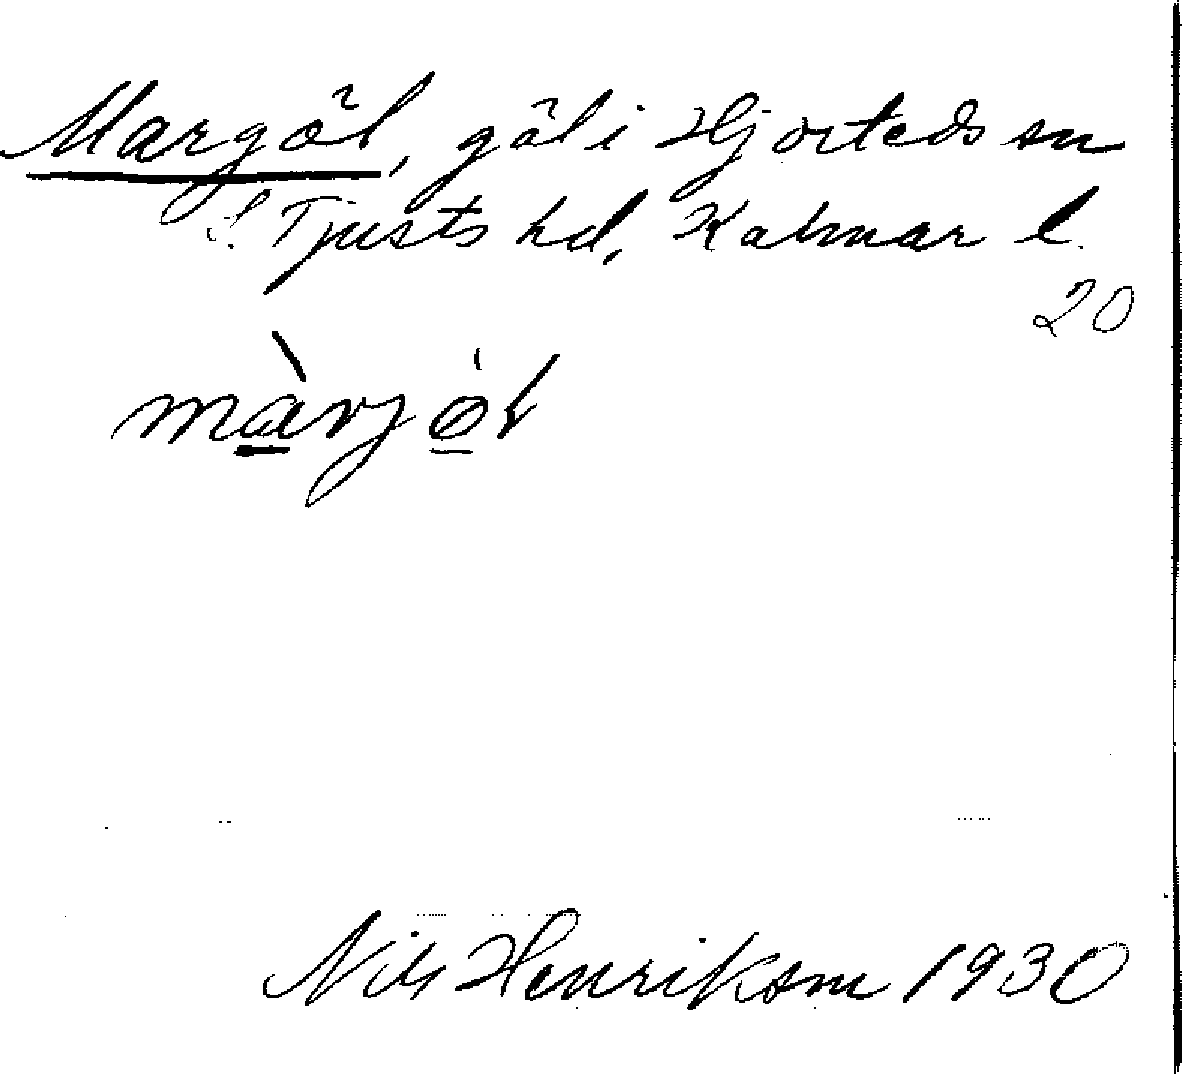 Margöl, göl i Hjorteds sn
S. Tjusts hd, Kalmar l.
20
màrjøl
Nils Henrikson 1930